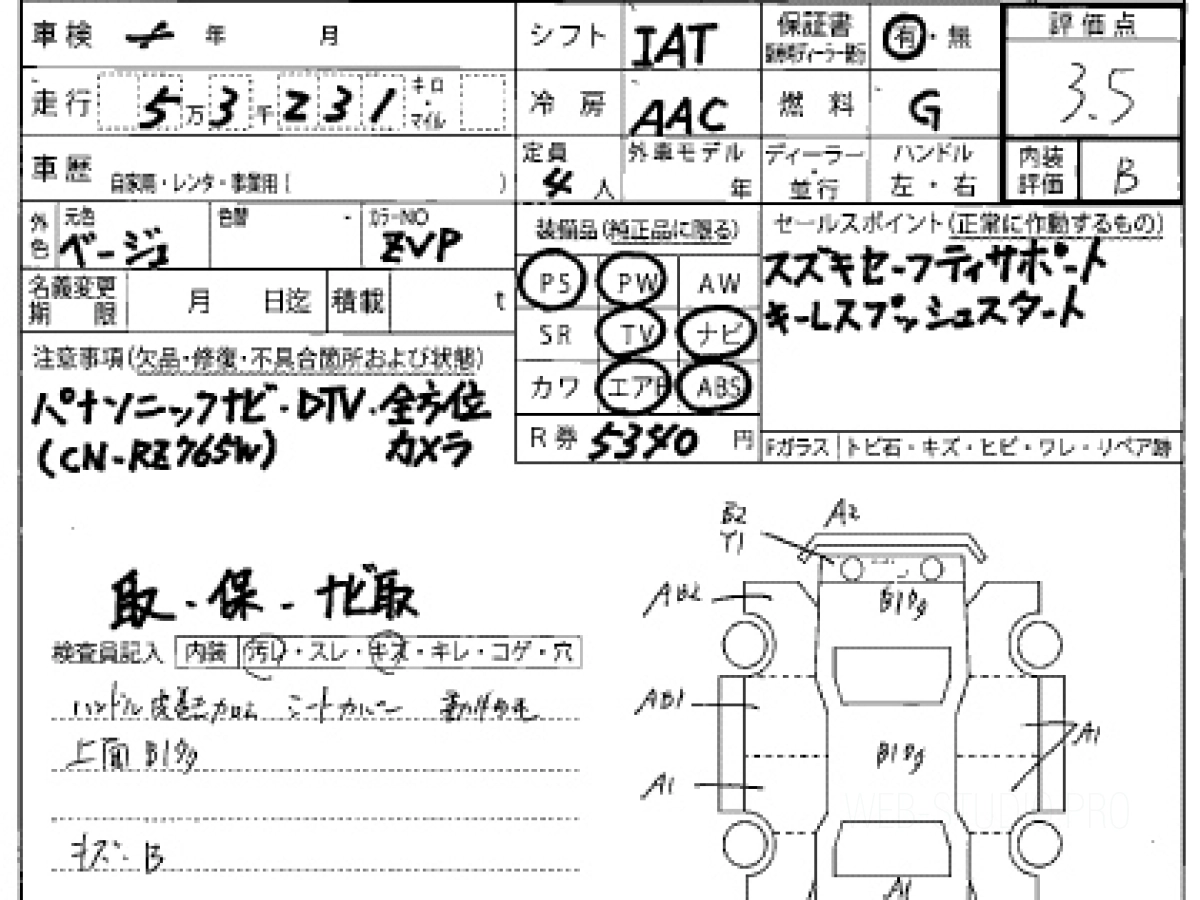 車検 年 月
シフト IAT
保証書 有・無
評価点
3.5
走行 5万3千231 キロ・マイル
冷房 AAC
燃料 G
車歴 自家用・レンタ・事業用( )
定員 4人
外車モデル 年
ディーラー・並行
ハンドル 左・右
内装評価 B
外色 元色 ベージュ
色替
カラーNO ZVP
装備品(純正品に限る)
セールスポイント(正常に作動するもの)
スズキセーフティサポート
キーレスプッシュスタート
PS PW AW
名義変更期限 月 日迄
積載 t
SR TV ナビ
カワ エアB ABS
注意事項(欠品・修復・不具合箇所および状態)
パナソニックナビ・DTV・全方位
(CN-RZ765W) カメラ
R券 5340 円
Fガラス トビ石・キズ・ヒビ・ワレ・リペア跡
B2
Y1
A2
AB2
B1Dg
取・保・ナビ取
検査員記入 内装 汚レ・スレ・キズ・キレ・コゲ・穴
シートカバー
上面 B1Dg
キズ B
AB1
B1Dg
A1
A1
A1
WEB-STUDIO.PRO